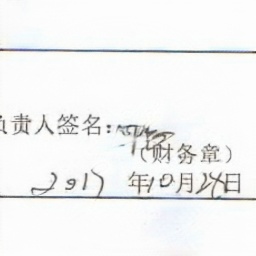 负责人签名:
(财务章)
2017 年10月24日